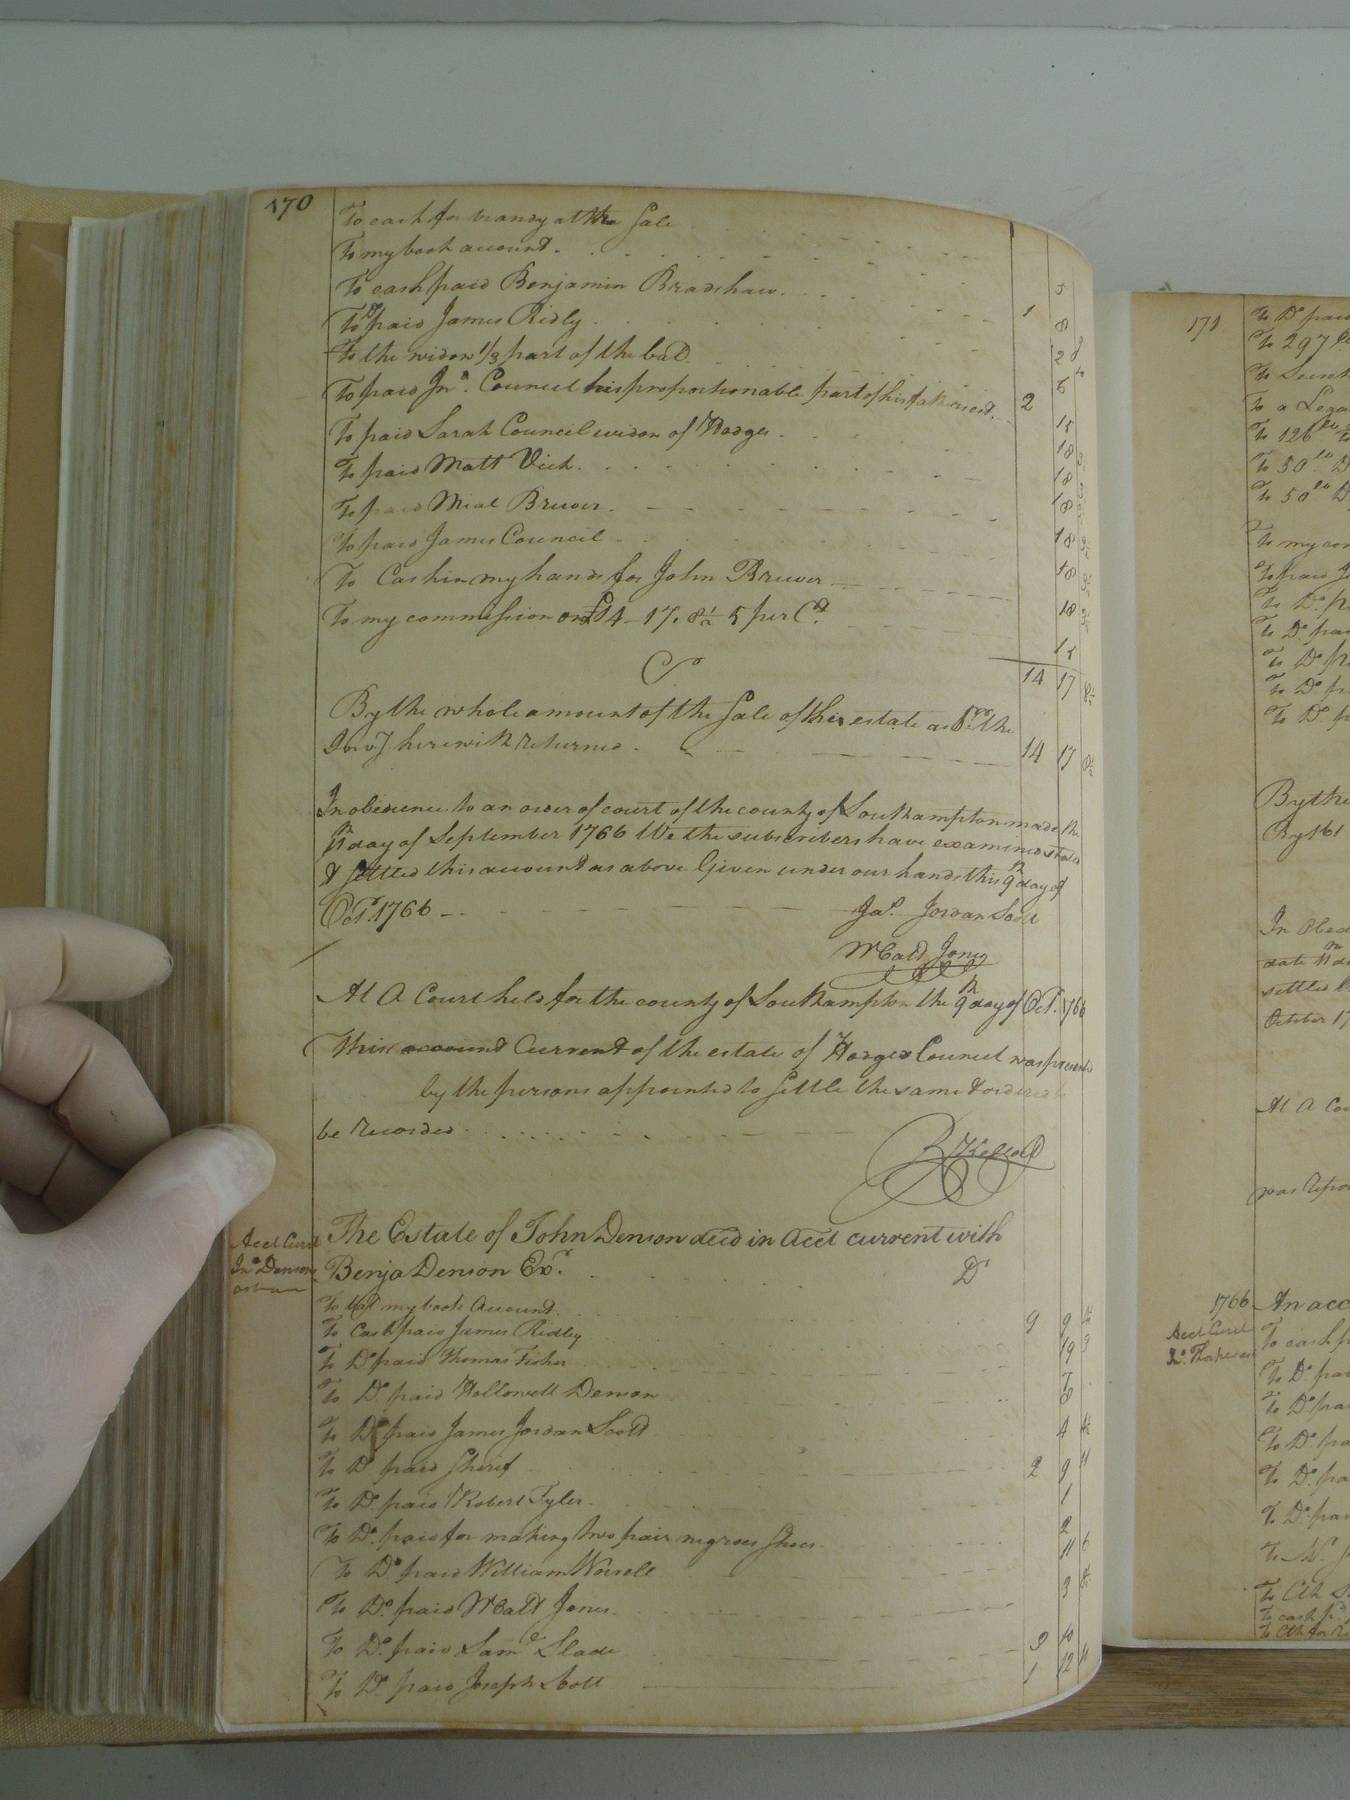 170
To cash for brandy at the Sale
To my book account
To cash paid Benjamin Bradshaw 5
To Do paid James Ridly 1 8
To the widow 1/3 part of the bed 2
To paid Jno. Council his proportionable part of his 2 6
To paid Sarah Council widow of Hodges 15
To paid Matt Vick 18
To paid Mial Brewer 18
To paid James Council 18
To Cash in my hands for John Brewer 18
To my commission on £14 - 17. 8½ a 5 per Ct. 15
Cr
14 17 8½
By the whole amount of the Sale of this estate as Per the
Invy herewith returned 14 17 8½
In obedience to an order of court of the county of Southampton made the
day of September 1766 We the subscribers have examined stated
& settled this account as above Given under our hands this 9th day of
Octr. 1766
Jas. Jordan Scott
At A Court held for the county of Southampton the 9th day of Octr. 1766
This account Current of the estate of Hodges Council was presented
by the persons appointed to settle the same & ordered to
be recorded
R Kello
Acct Curt
Jno Denson
The Estate of John Denson decd in Acct current with
Benja Denson Exr. Dr
To my book Account 9 9
To Cash paid James Ridley 19
To Do paid Thomas Fisher 7
To Do. paid Hollowell Denson 8
To Do paid James Jordan Scott 4
To Do paid Sherif 2 9 11
To Do. paid Robert Tyler 1
To Do. paid for making two pair negroes Shoes 2
To Do paid William Worrell 11 6
To Do. paid Matt Jones 3
To Do. paid Saml Slade 3 10
To Do. paid Joseph Scott 1 12 11
171
To Do. paid
To 297
To a Lega
To 126
To 50 lb D
To 50 lb D
To my com
To paid J
To Do. p
To Do. pai
To Do. p
To Do. p
To Do. p
By the
In Obed
settled
October 17
At A Cou
1766
An acc
Acct Curt
To cash p
To Do. pai
To Do. pa
To Do. pa
To Do. pa
To Do. pai
To cash p